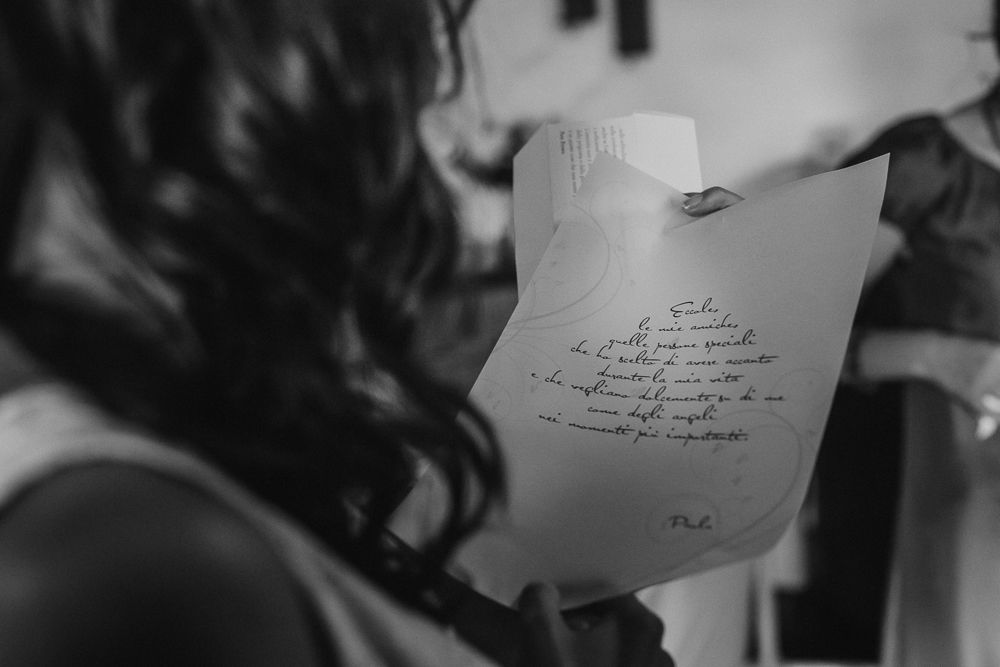 Eccoles
le mie amiches
quelle persone speciali
che ho scelto di avere accanto
durante la mia vita
e che vegliano dolcemente su di me
come degli angeli
nei momenti più importanti.